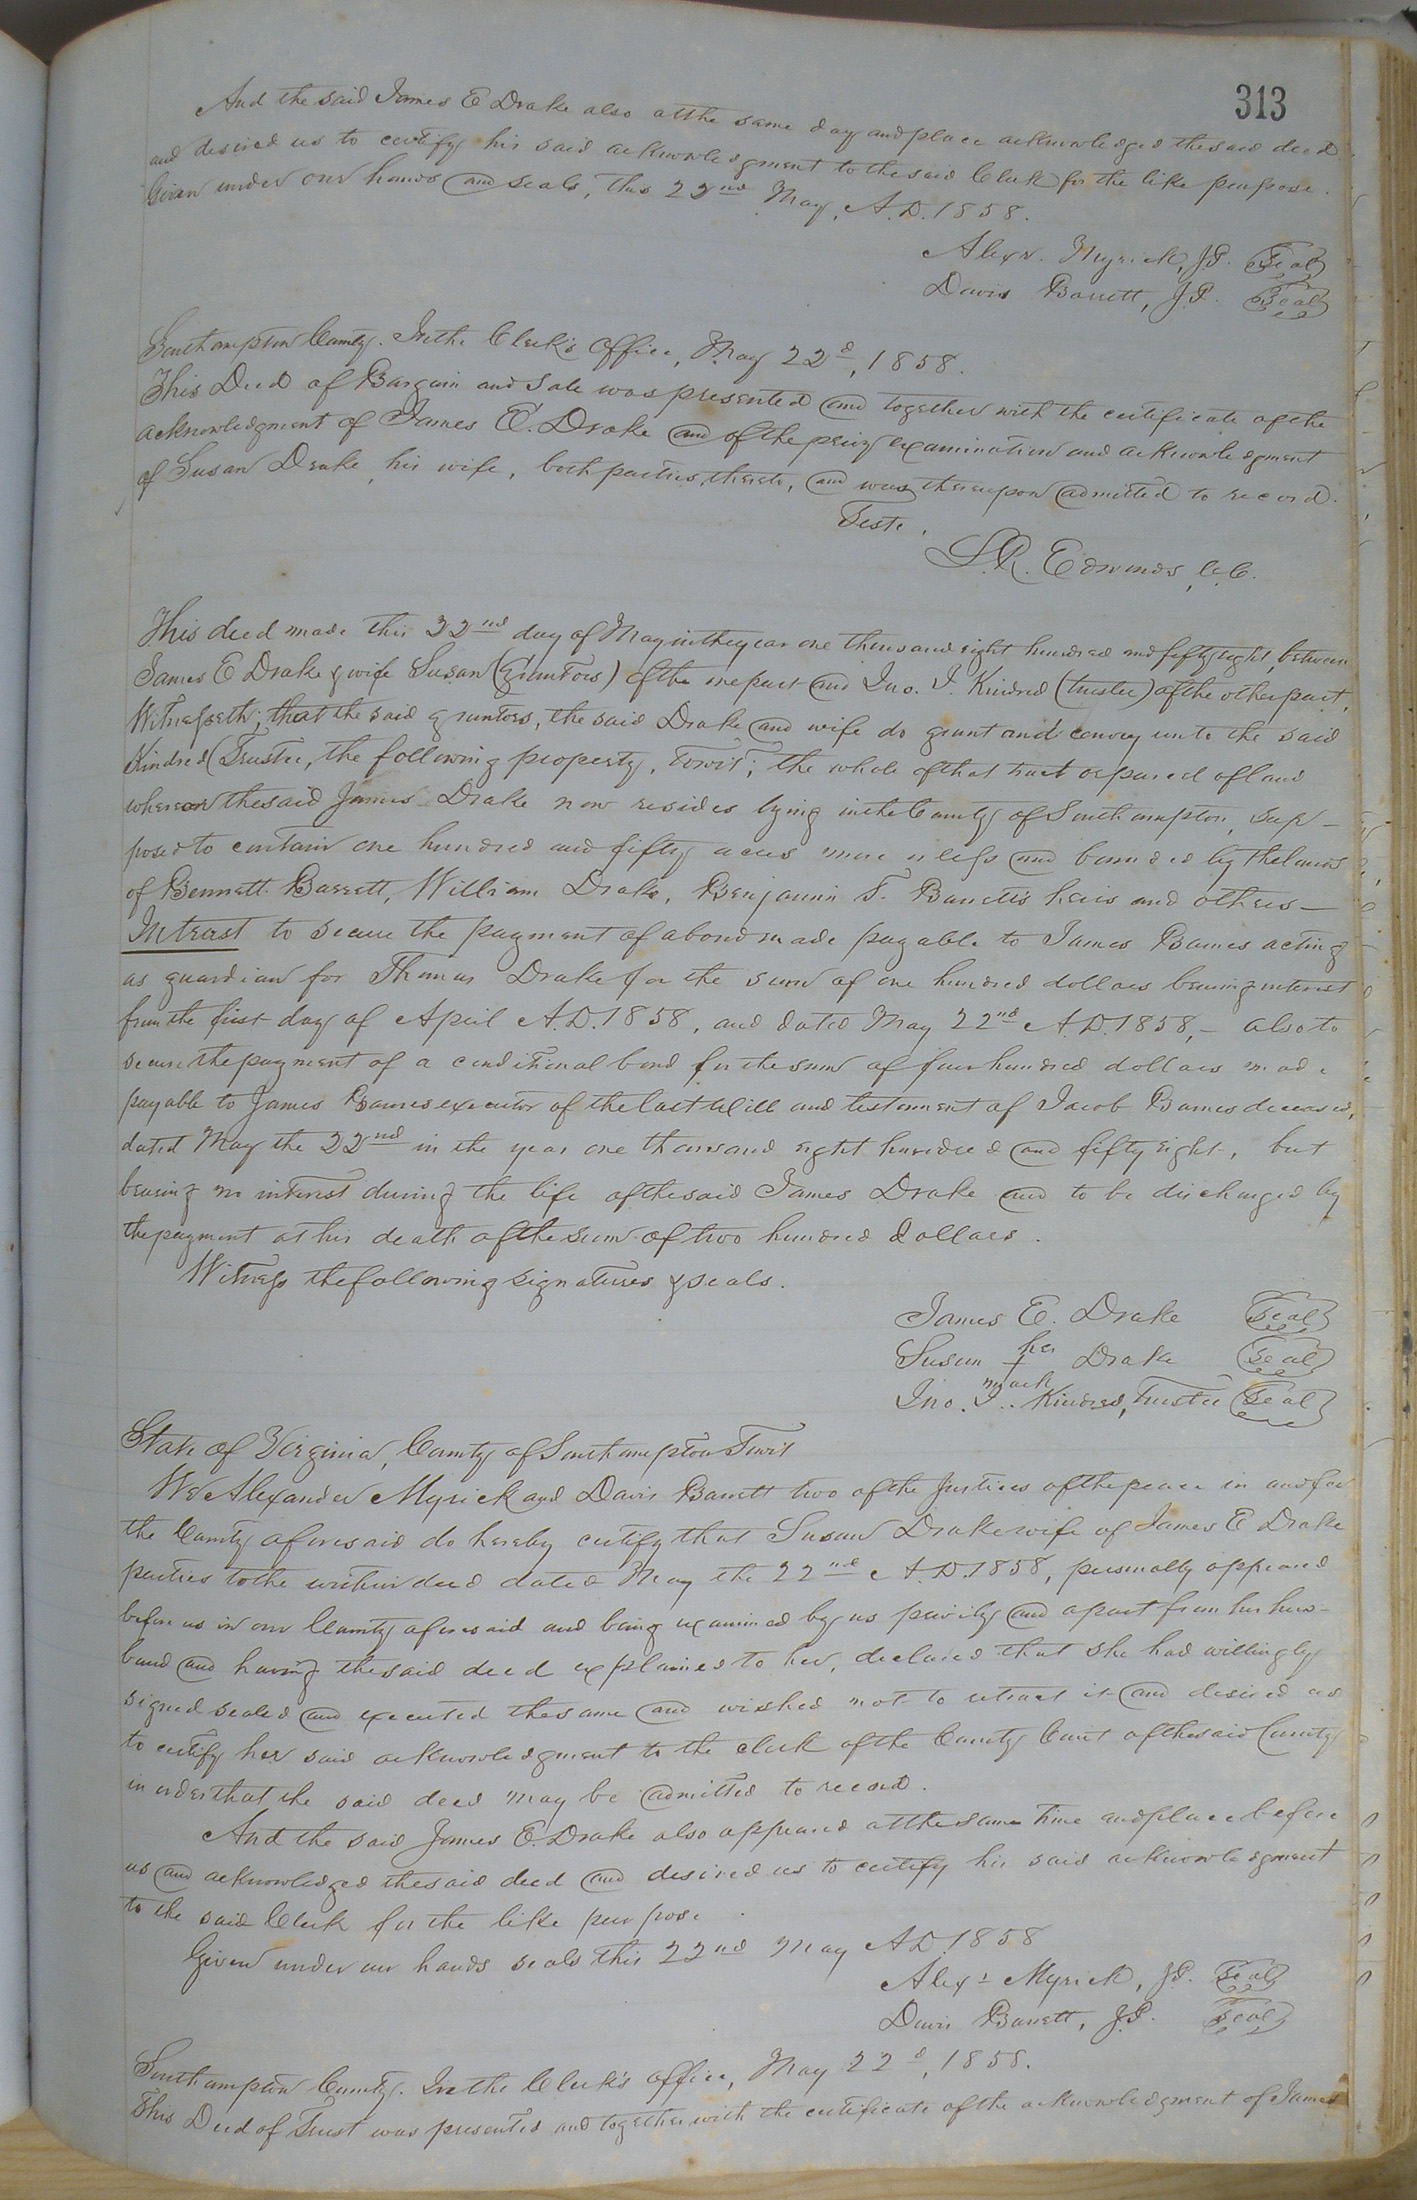 313
And the said James E Drake also at the same day and place acknowledged the said deed
and desired us to certify his said acknowledgment to the said Clerk for the like purpose.
Given under our hands and seals, this 22nd May, A.D. 1858.
Alexr. Myrick, J.P. Seal
Davis Barrett, J.P. Seal
Southampton County. In the Clerk's Office, May 22d, 1858.
This Deed of Bargain and Sale was presented and together with the certificate of the
acknowledgment of James E. Drake and of the privy examination and acknowledgment
of Susan Drake, his wife, both parties thereto, and was thereupon admitted to record.
Teste,
L.R. Edwards, C.C.
This deed made this 22nd day of May in the year one thousand eight hundred and fifty eight, between
James E Drake & wife Susan (Grantors) of the one part and Jno. J. Kindred (trustee) of the other part,
Witnesseth; that the said grantors, the said Drake and wife do grant and convey unto the said
Kindred (Trustee, the following property, towit; the whole of that tract or parcel of land
whereon the said James Drake now resides lying in the County of Southampton, sup-
posed to contain one hundred and fifty acres more or less and bounded by the lands
of Bennett Barrett, William Drake, Benjamin F. Barrett's heirs and others—
In trust to secure the payment of a bond made payable to James Barnes acting
as guardian for Thomas Drake for the sum of one hundred dollars bearing interest
from the first day of April A.D. 1858, and dated May 22nd A.D. 1858,— also to
secure the payment of a conditional bond for the sum of four hundred dollars made
payable to James Barnes executor of the last Will and testament of Jacob Barnes deceased,
dated May the 22nd in the year one thousand eight hundred and fifty eight, but
bearing no interest during the life of the said James Drake and to be discharged by
the payment at his death of the sum of two hundred dollars.
Witness the following signatures & seals.
James E. Drake Seal
Susan her Drake Seal
mark
Jno. J. Kindred, Trustee Seal
State of Virginia, County of Southampton Towit
We Alexander Myrick and Davis Barrett two of the Justices of the peace in and for
the County aforesaid do hereby certify that Susan Drake wife of James E Drake
parties to the within deed dated May the 22nd A.D. 1858, personally appeared
before us in our County aforesaid and being examined by us privily and apart from her hus-
band and having the said deed explained to her, declared that she had willingly
signed sealed and executed the same and wished not to retract it and desired us
to certify her said acknowledgment to the clerk of the County Court of the said County
in order that the said deed may be admitted to record.
And the said James E. Drake also appeared at the same time and place before
us and acknowledged the said deed and desired us to certify his said acknowledgment
to the said Clerk for the like purpose.
Given under our hands seals this 22nd May AD. 1858
Alexr Myrick, J.P. Seal
Davis Barrett, J.P. Seal
Southampton County. In the Clerk's office, May 22d, 1858.
This Deed of Trust was presented and together with the certificate of the acknowledgment of James